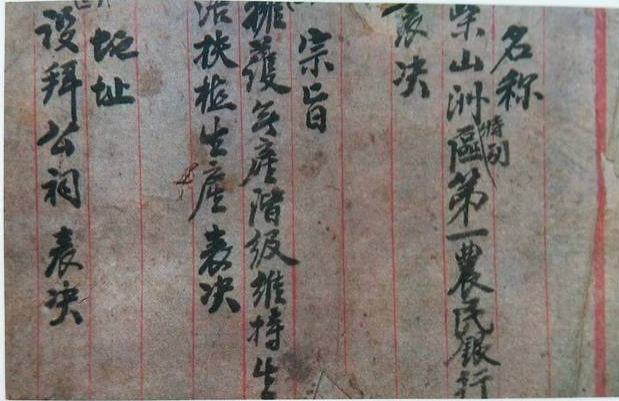 名称
柴山洲特别區第一農民銀行
表决
宗旨
擁護無產階級維持生
活扶植生產表决
地址
设拜公祠表决